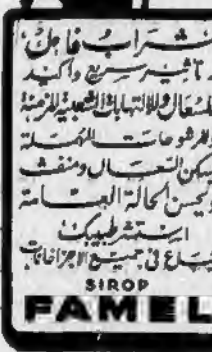 شراب فامل
تأثير سريع وأكيد
للسعال وللالتهابات الشعبية المزمنة
وللرشوحات المهملة
يسكن السعال ومنفث
ويحسن الحالة العامة
استشر طبيبك
يباع في جميع الاجزاخانات
SIROP
FAMEL